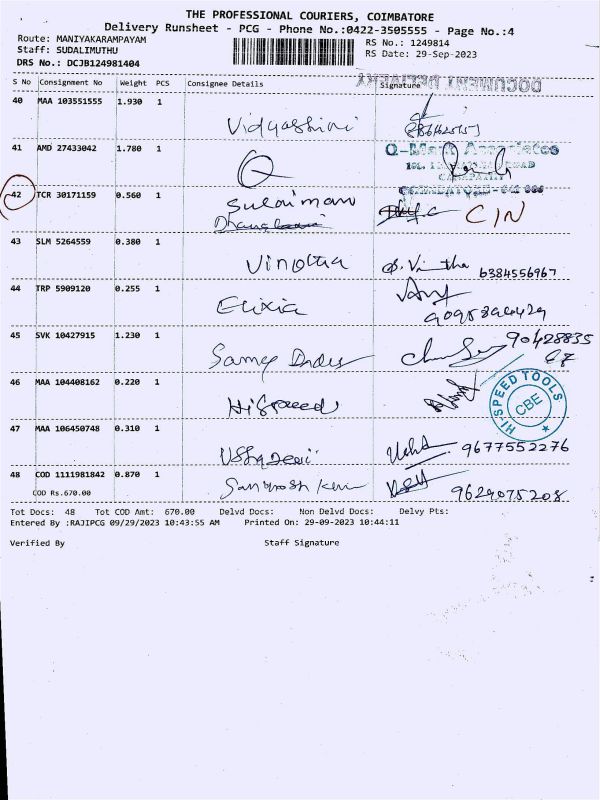 THE PROFESSIONAL COURIERS, COIMBATORE
Delivery Runsheet - PCG - Phone No.:0422-3505555 - Page No.:4
Route: MANIYAKARAMPAYAM
Staff: SUDALIMUTHU
DRS No.: DCJB124981404
RS No.: 1249814
RS Date: 29-Sep-2023
S No Consignment No Weight PCS Consignee Details Signature
40 MAA 103551555 1.930 1
Vidyashini
41 AMD 27433042 1.780 1
Q
Q-Mark Associates
ROAD
COIMBATORE-641 006
42 TCR 30171159 0.560 1
Sulaiman
CIN
43 SLM 5264559 0.380 1
Vinotha S. Vinotha 6384556967
44 TRP 5909120 0.255 1
Elixia
45 SVK 10427915 1.230 1
90428835
67
46 MAA 104408162 0.220 1
HiSpeed
HI-SPEED TOOLS
CBE
47 MAA 106450748 0.310 1
Usha Devi Usha 9677552276
48 COD 1111981842 0.870 1
COD Rs.670.00
Santhosh Kumar 9629075208
Tot Docs: 48 Tot COD Amt: 670.00 Delvd Docs: Non Delvd Docs: Delvy Pts:
Entered By :RAJIPCG 09/29/2023 10:43:55 AM Printed On: 29-09-2023 10:44:11
Verified By Staff Signature